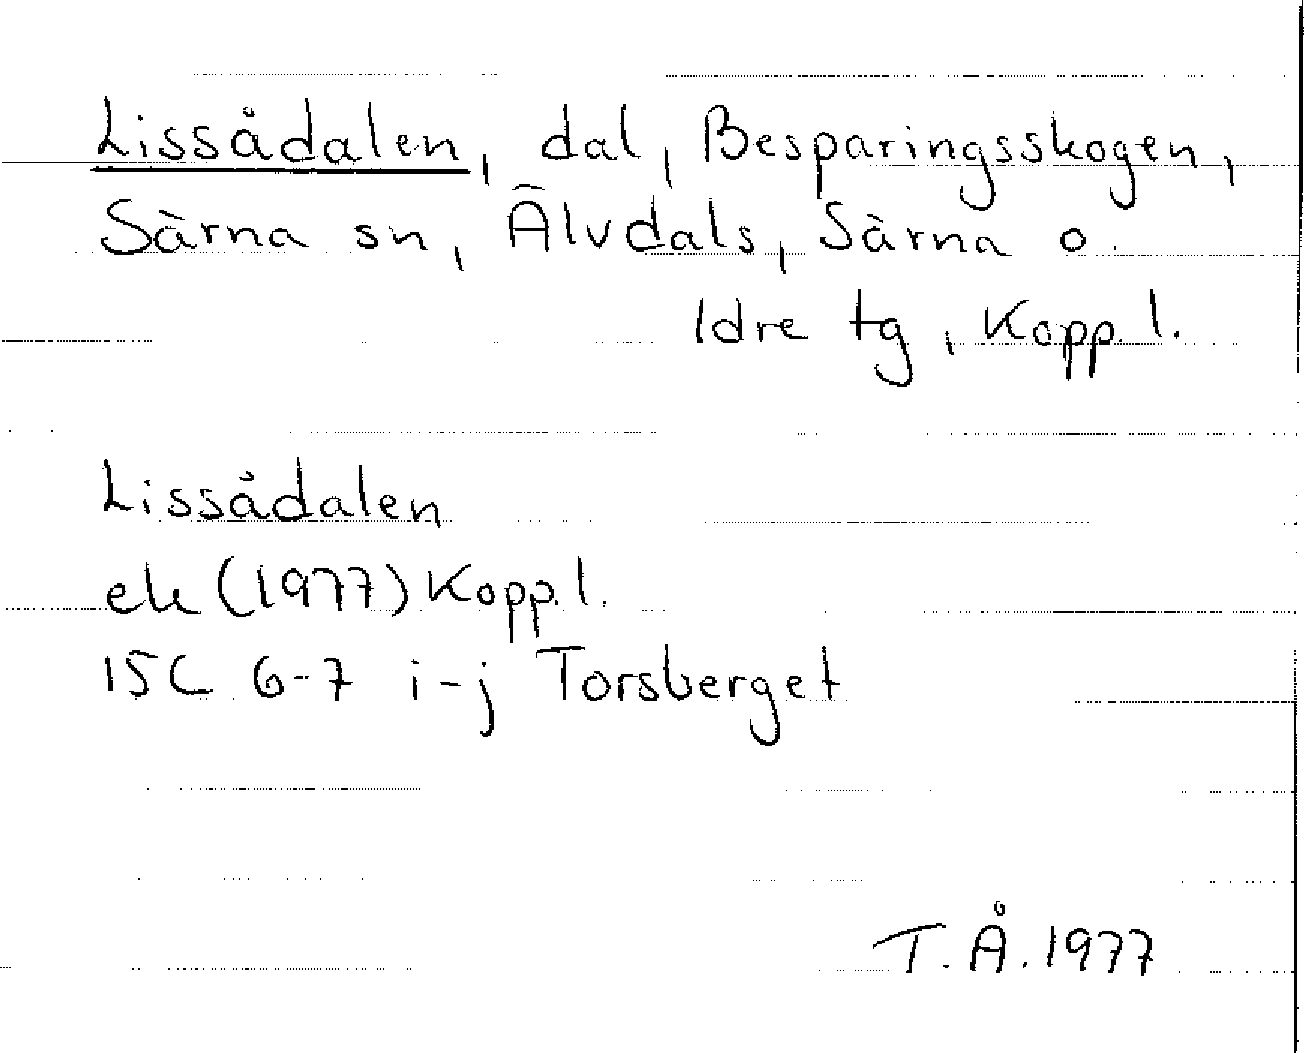 Lissådalen, dal, Besparingsskogen,
Särna sn, Älvdals, Särna o.
Idre tg, Kopp. l.
Lissådalen
ek (1977) Kopp. l.
15C 6-7 i-j Torsberget
T.Å. 1977